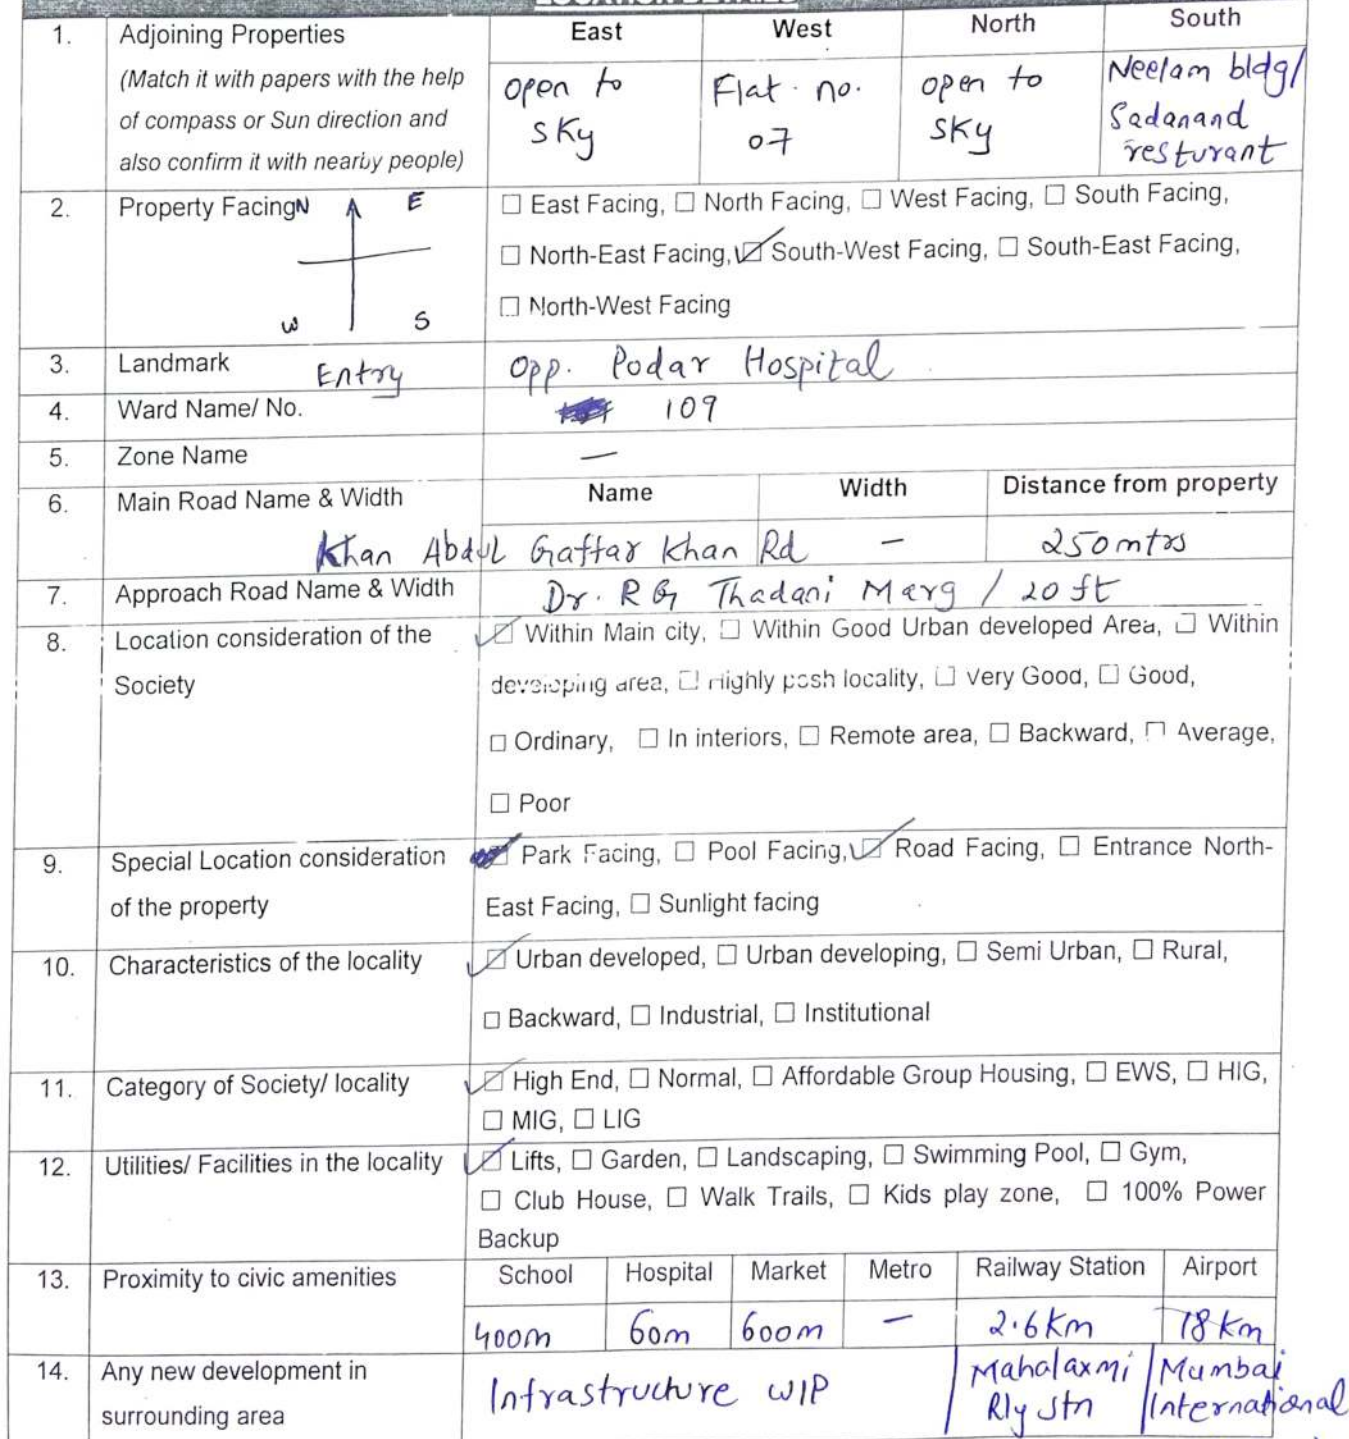 LOCATION DETAILS
1. Adjoining Properties East West North South
(Match it with papers with the help
of compass or Sun direction and
also confirm it with nearby people)
open to
SKy
Flat no.
07
open to
SKy
Neelam bldg/
Sadanand
resturant
2. Property Facing N E
W S
☐ East Facing, ☐ North Facing, ☐ West Facing, ☐ South Facing,
☐ North-East Facing, ☑ South-West Facing, ☐ South-East Facing,
☐ North-West Facing
3. Landmark Entry Opp. Podar Hospital
4. Ward Name/ No. 109
5. Zone Name —
6. Main Road Name & Width Name Width Distance from property
Khan Abdul Gaffar Khan Rd — 250 mtrs
7. Approach Road Name & Width Dr. R G Thadani Marg / 20 ft
8. Location consideration of the
Society
☑ Within Main city, ☐ Within Good Urban developed Area, ☐ Within
developing area, ☐ Highly posh locality, ☐ Very Good, ☐ Good,
☐ Ordinary, ☐ In interiors, ☐ Remote area, ☐ Backward, ☐ Average,
☐ Poor
9. Special Location consideration
of the property
Park Facing, ☐ Pool Facing, ☑ Road Facing, ☐ Entrance North-
East Facing, ☐ Sunlight facing
10. Characteristics of the locality
☑ Urban developed, ☐ Urban developing, ☐ Semi Urban, ☐ Rural,
☐ Backward, ☐ Industrial, ☐ Institutional
11. Category of Society/ locality
☑ High End, ☐ Normal, ☐ Affordable Group Housing, ☐ EWS, ☐ HIG,
☐ MIG, ☐ LIG
12. Utilities/ Facilities in the locality
☑ Lifts, ☐ Garden, ☐ Landscaping, ☐ Swimming Pool, ☐ Gym,
☐ Club House, ☐ Walk Trails, ☐ Kids play zone, ☐ 100% Power
Backup
13. Proximity to civic amenities School Hospital Market Metro Railway Station Airport
400m 60m 600m — 2.6 Km 18 Km
14. Any new development in
surrounding area
Infrastructure WIP
Mahalaxmi
Rly Stn
Mumbai
International